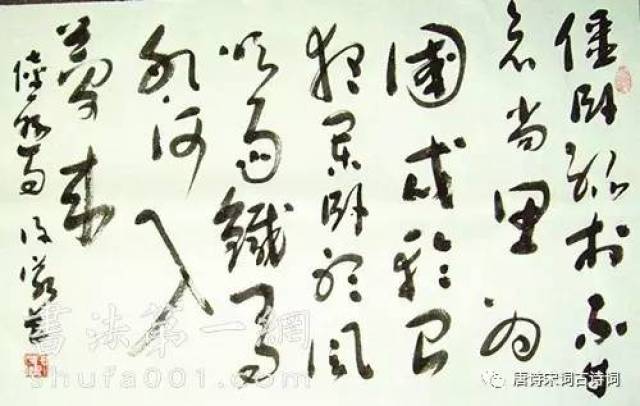 僵卧孤村不自
哀尚思为
國戍轮台
夜阑卧听風
吹雨鐵馬
冰河入
夢来
陸游
書法第一網
shufa001.com
唐诗宋词古诗词